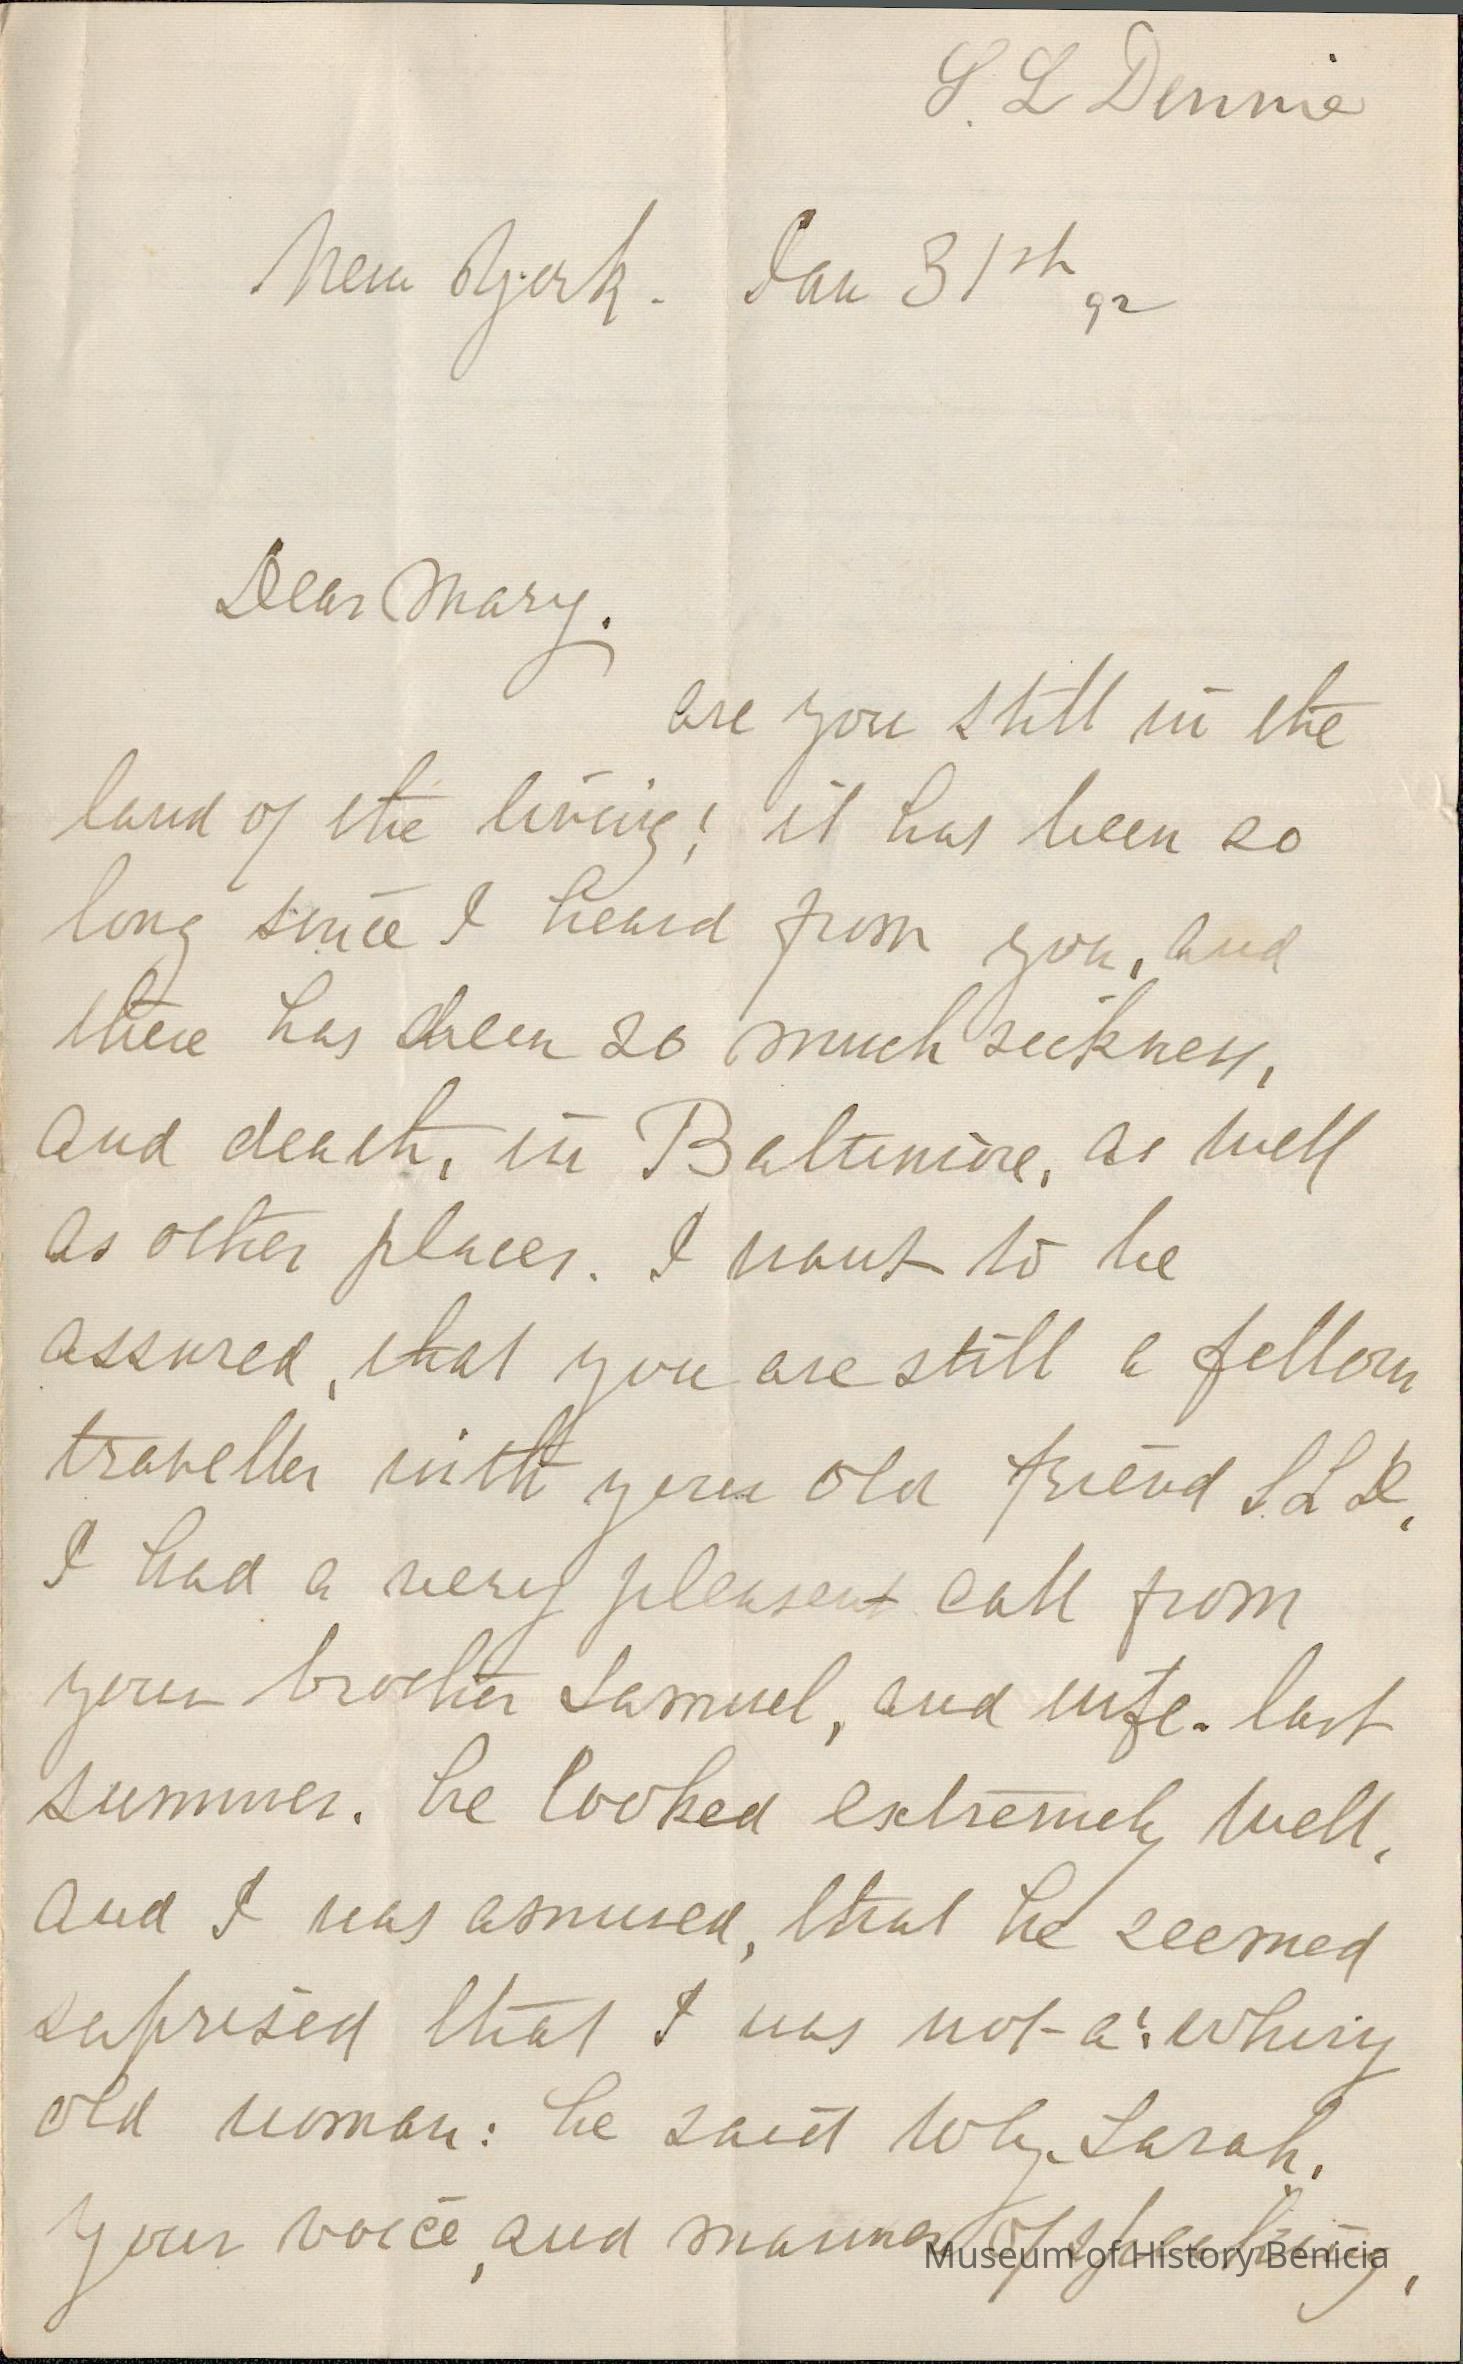 S. L Dennie
New York. Jan 31st 92
Dear Mary.
are you still in the
land of the living; it has been so
long since I heard from you, and
there has been so much sickness,
and death, in Baltimore, as well
as other places. I want to be
assured, that you are still a fellow
traveller with your old friend S. L D,
I had a very pleasent call from
your brother Samuel, and wife. last
summer. he looked extremely well,
and I was amused, that he seemed
suprised that I was not a
old woman: he said Why Sarah,
your voice, and manner of speaking,
Museum of History Benicia